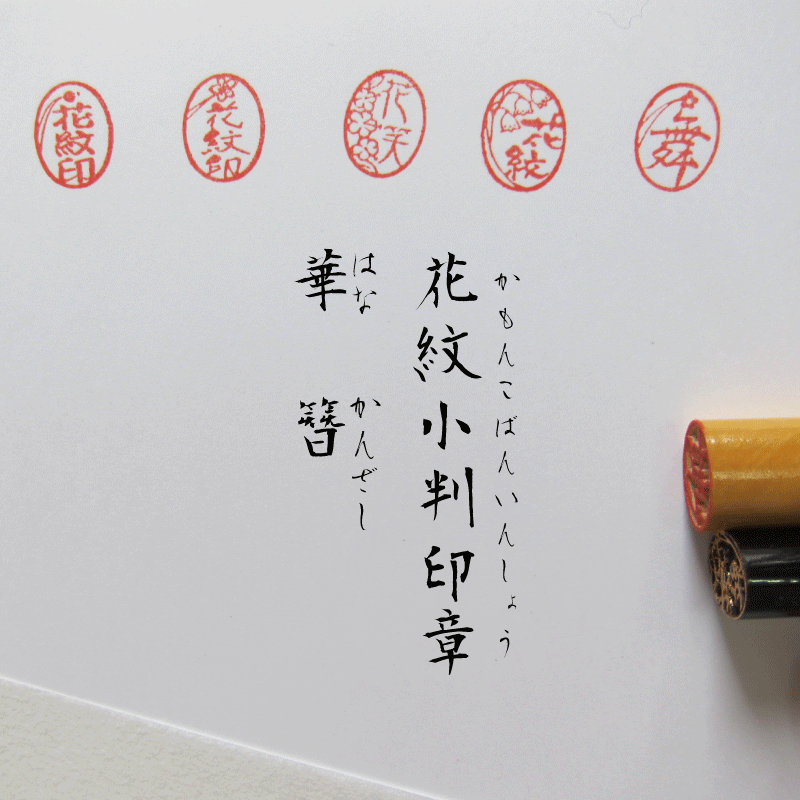 花紋印
花紋印
花笑
花紋
舞
花紋小判印章
かもんこばんいんしょう
華簪
はなかんざし